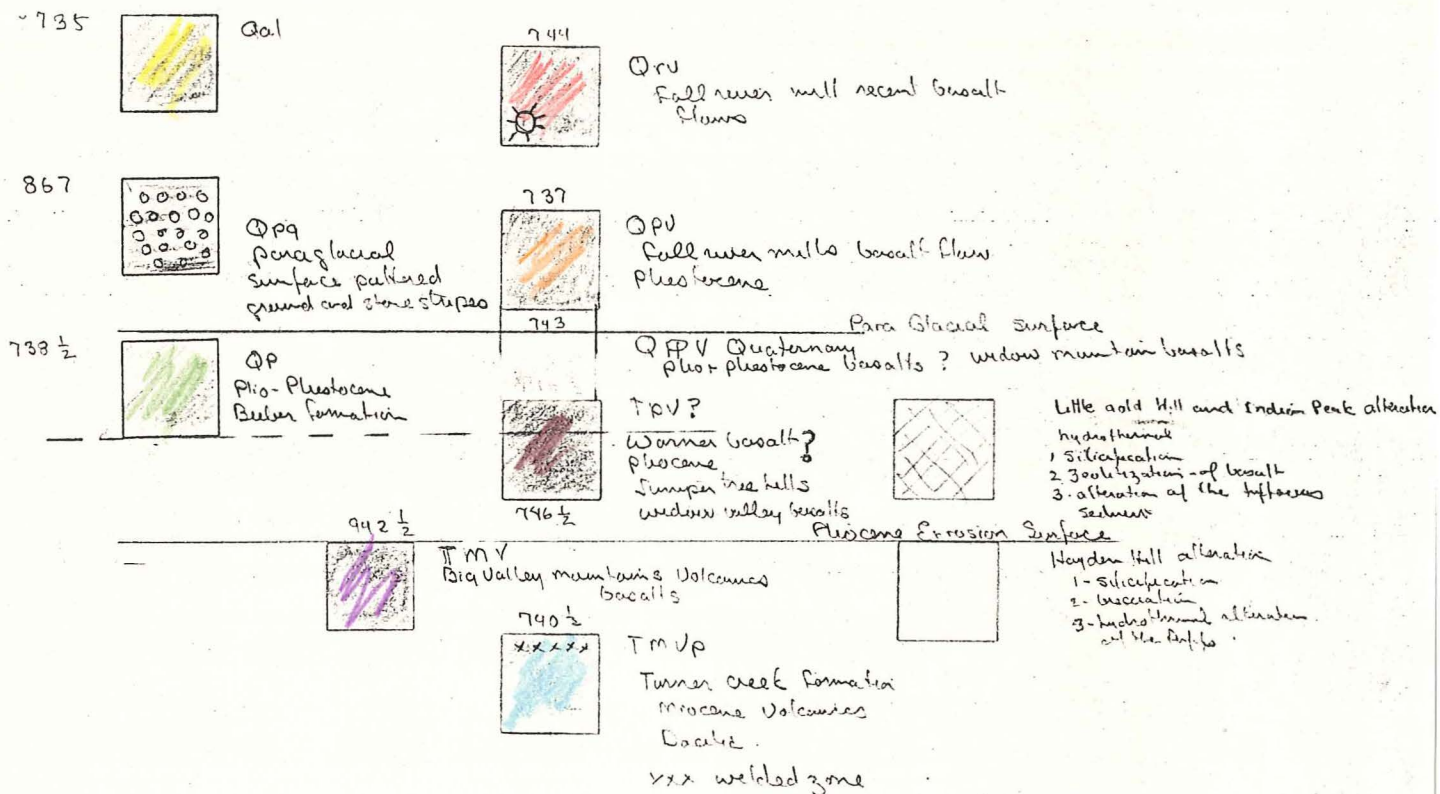 735
Qal
744
Qrv
Fall river mill recent basalt
flows
867
Qpg
paraglacial
surface pattered
ground and stone stripes
737
Qpv
Fall river mills basalt flow
Pleistocene
743
Para Glacial surface
738 ½
QP
Plio-Pleistocene
Bieber formation
QPPV Quaternary
plio pleistocene basalts ? widow mountain basalts
TPV?
Warner basalt?
pliocene
Juniper tree hills
widow valley basalts
746 ½
Little gold Hill and Indian Peak alteration
hydrothermal
1 silicification
2 Zeolitization - of basalt
3. alteration of the tuffaceous
sediment
Pliocene Errosion Surface
942 ½
TMV
Big Valley mountains Volcanics
basalts
Hayden Hill alteration
1- silicification
2- brecciation
3- hydrothermal alteration
of the
740 ½
xxxxx
TMVp
Turner creek formation
miocene Volcanics
Dacitic.
xxx welded zone